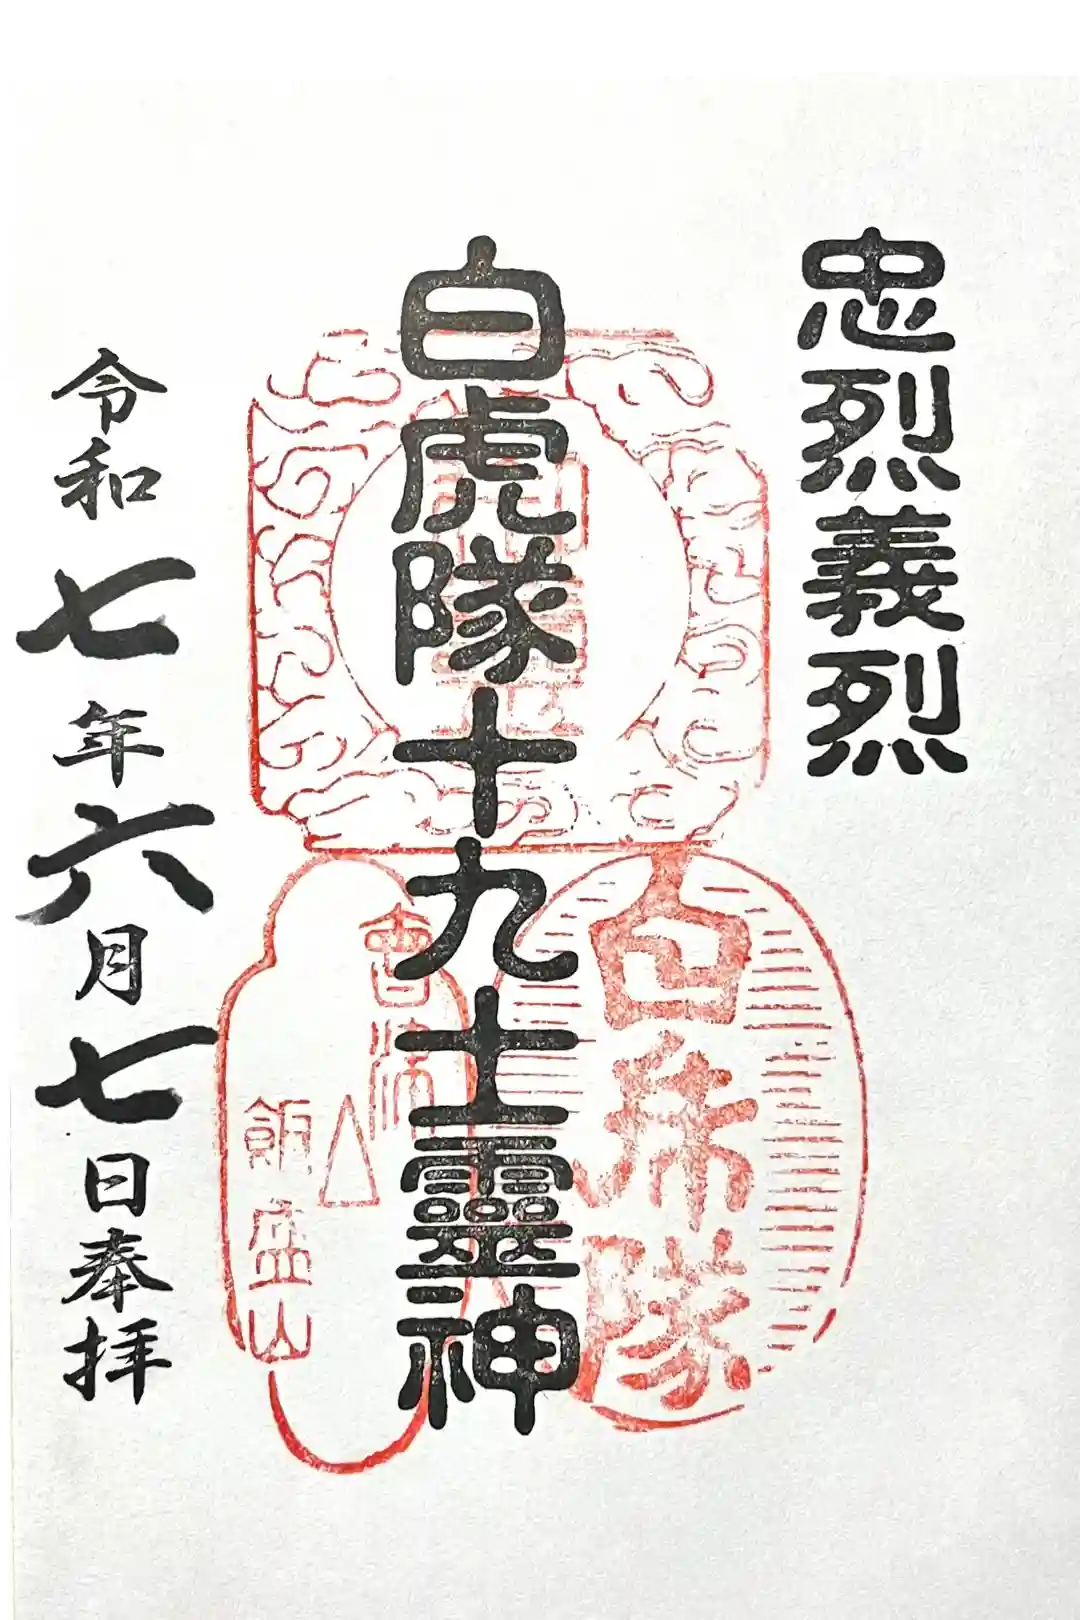 忠烈義烈
白虎隊十九士靈神
白虎隊
會津
飯盛山
令和七年六月七日奉拝